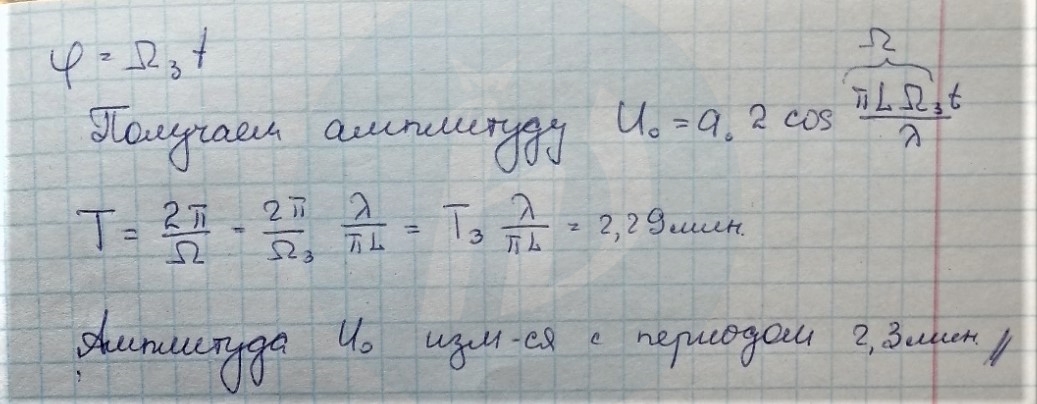 φ = Ω₃ t
Получаем амплитуду U₀ = a₀ 2 cos πLΩ₃t / λ
Ω
T = 2π/Ω = 2π/Ω₃ λ/πL = T₃ λ/πL = 2,29 мин.
Амплитуда U₀ изм-ся с периодом 2,3 мин. //